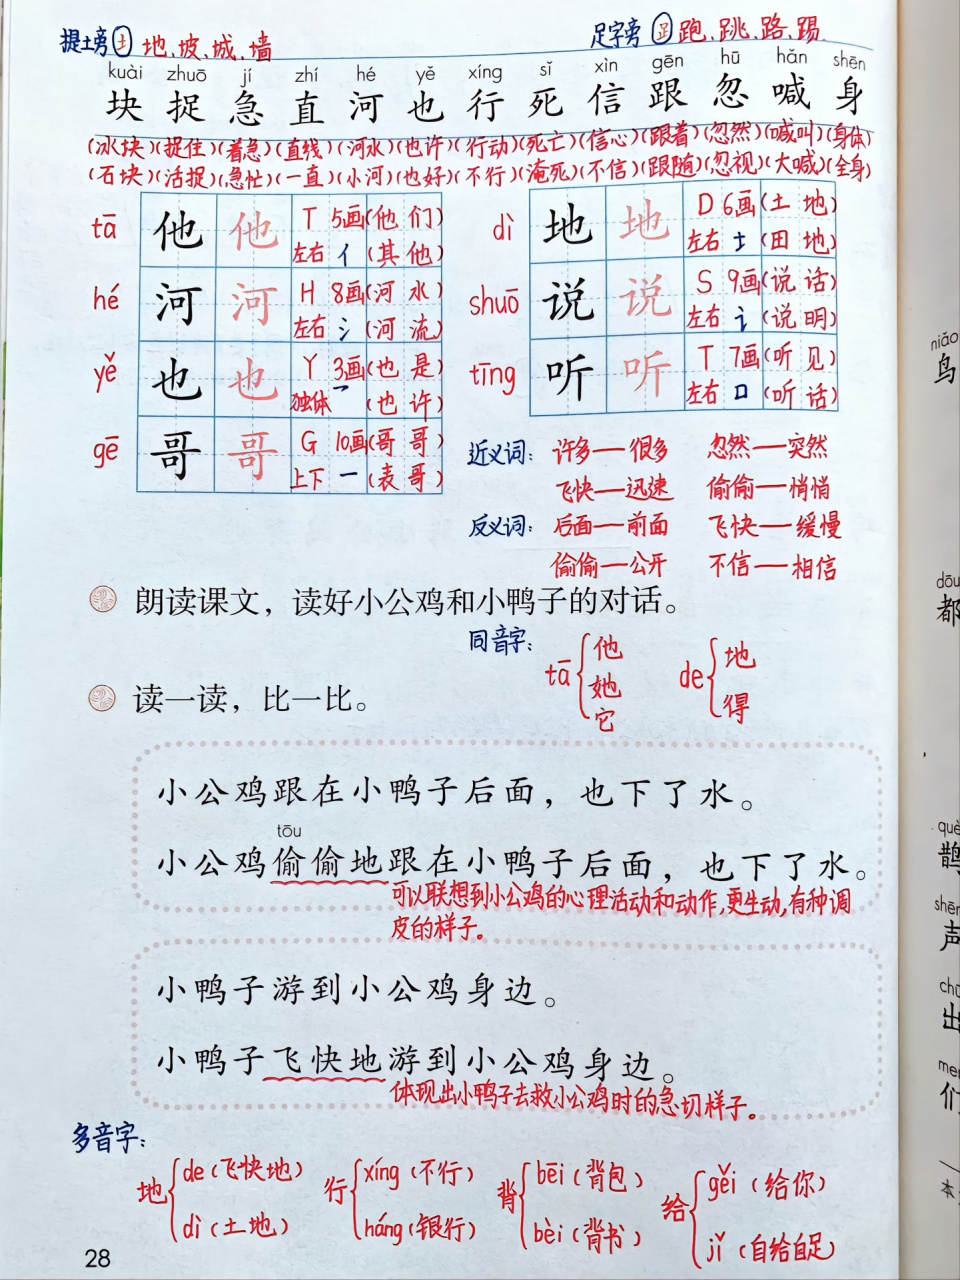 提土旁 土 地、坡、城、墙
足字旁 𧾷 跑、跳、路、踢
kuài zhuō jí zhí hé yě xíng sǐ xìn gēn hū hǎn shēn
块 捉 急 直 河 也 行 死 信 跟 忽 喊 身
(冰块)(捉住)(着急)(直线)(河水)(也许)(行动)(死亡)(信心)(跟着)(忽然)(喊叫)(身体)
(石块)(活捉)(急忙)(一直)(小河)(也好)(不行)(淹死)(不信)(跟随)(忽视)(大喊)(全身)
tā 他 他 T 5画(他们)
左右 亻(其他)
hé 河 河 H 8画(河水)
左右 氵(河流)
yě 也 也 Y 3画(也是)
独体 乛(也许)
gē 哥 哥 G 10画(哥哥)
上下 一(表哥)
dì 地 地 D 6画(土地)
左右 土(田地)
shuō 说 说 S 9画(说话)
左右 讠(说明)
tīng 听 听 T 7画(听见)
左右 口(听话)
近义词: 许多——很多 忽然——突然
飞快——迅速 偷偷——悄悄
反义词: 后面——前面 飞快——缓慢
偷偷——公开 不信——相信
朗读课文，读好小公鸡和小鸭子的对话。
同音字: tā 他 她 它 de 地 得
读一读，比一比。
小公鸡跟在小鸭子后面，也下了水。
tōu
小公鸡偷偷地跟在小鸭子后面，也下了水。
可以联想到小公鸡的心理活动和动作,更生动,有种调
皮的样子。
小鸭子游到小公鸡身边。
小鸭子飞快地游到小公鸡身边。
体现出小鸭子去救小公鸡时的急切样子。
多音字:
地 de(飞快地) dì(土地)
行 xíng(不行) háng(银行)
背 bēi(背包) bèi(背书)
给 gěi(给你) jǐ(自给自足)
28
niǎo
鸟
dōu
都
què
鹊
shēn
声
chū
出
men
们
本